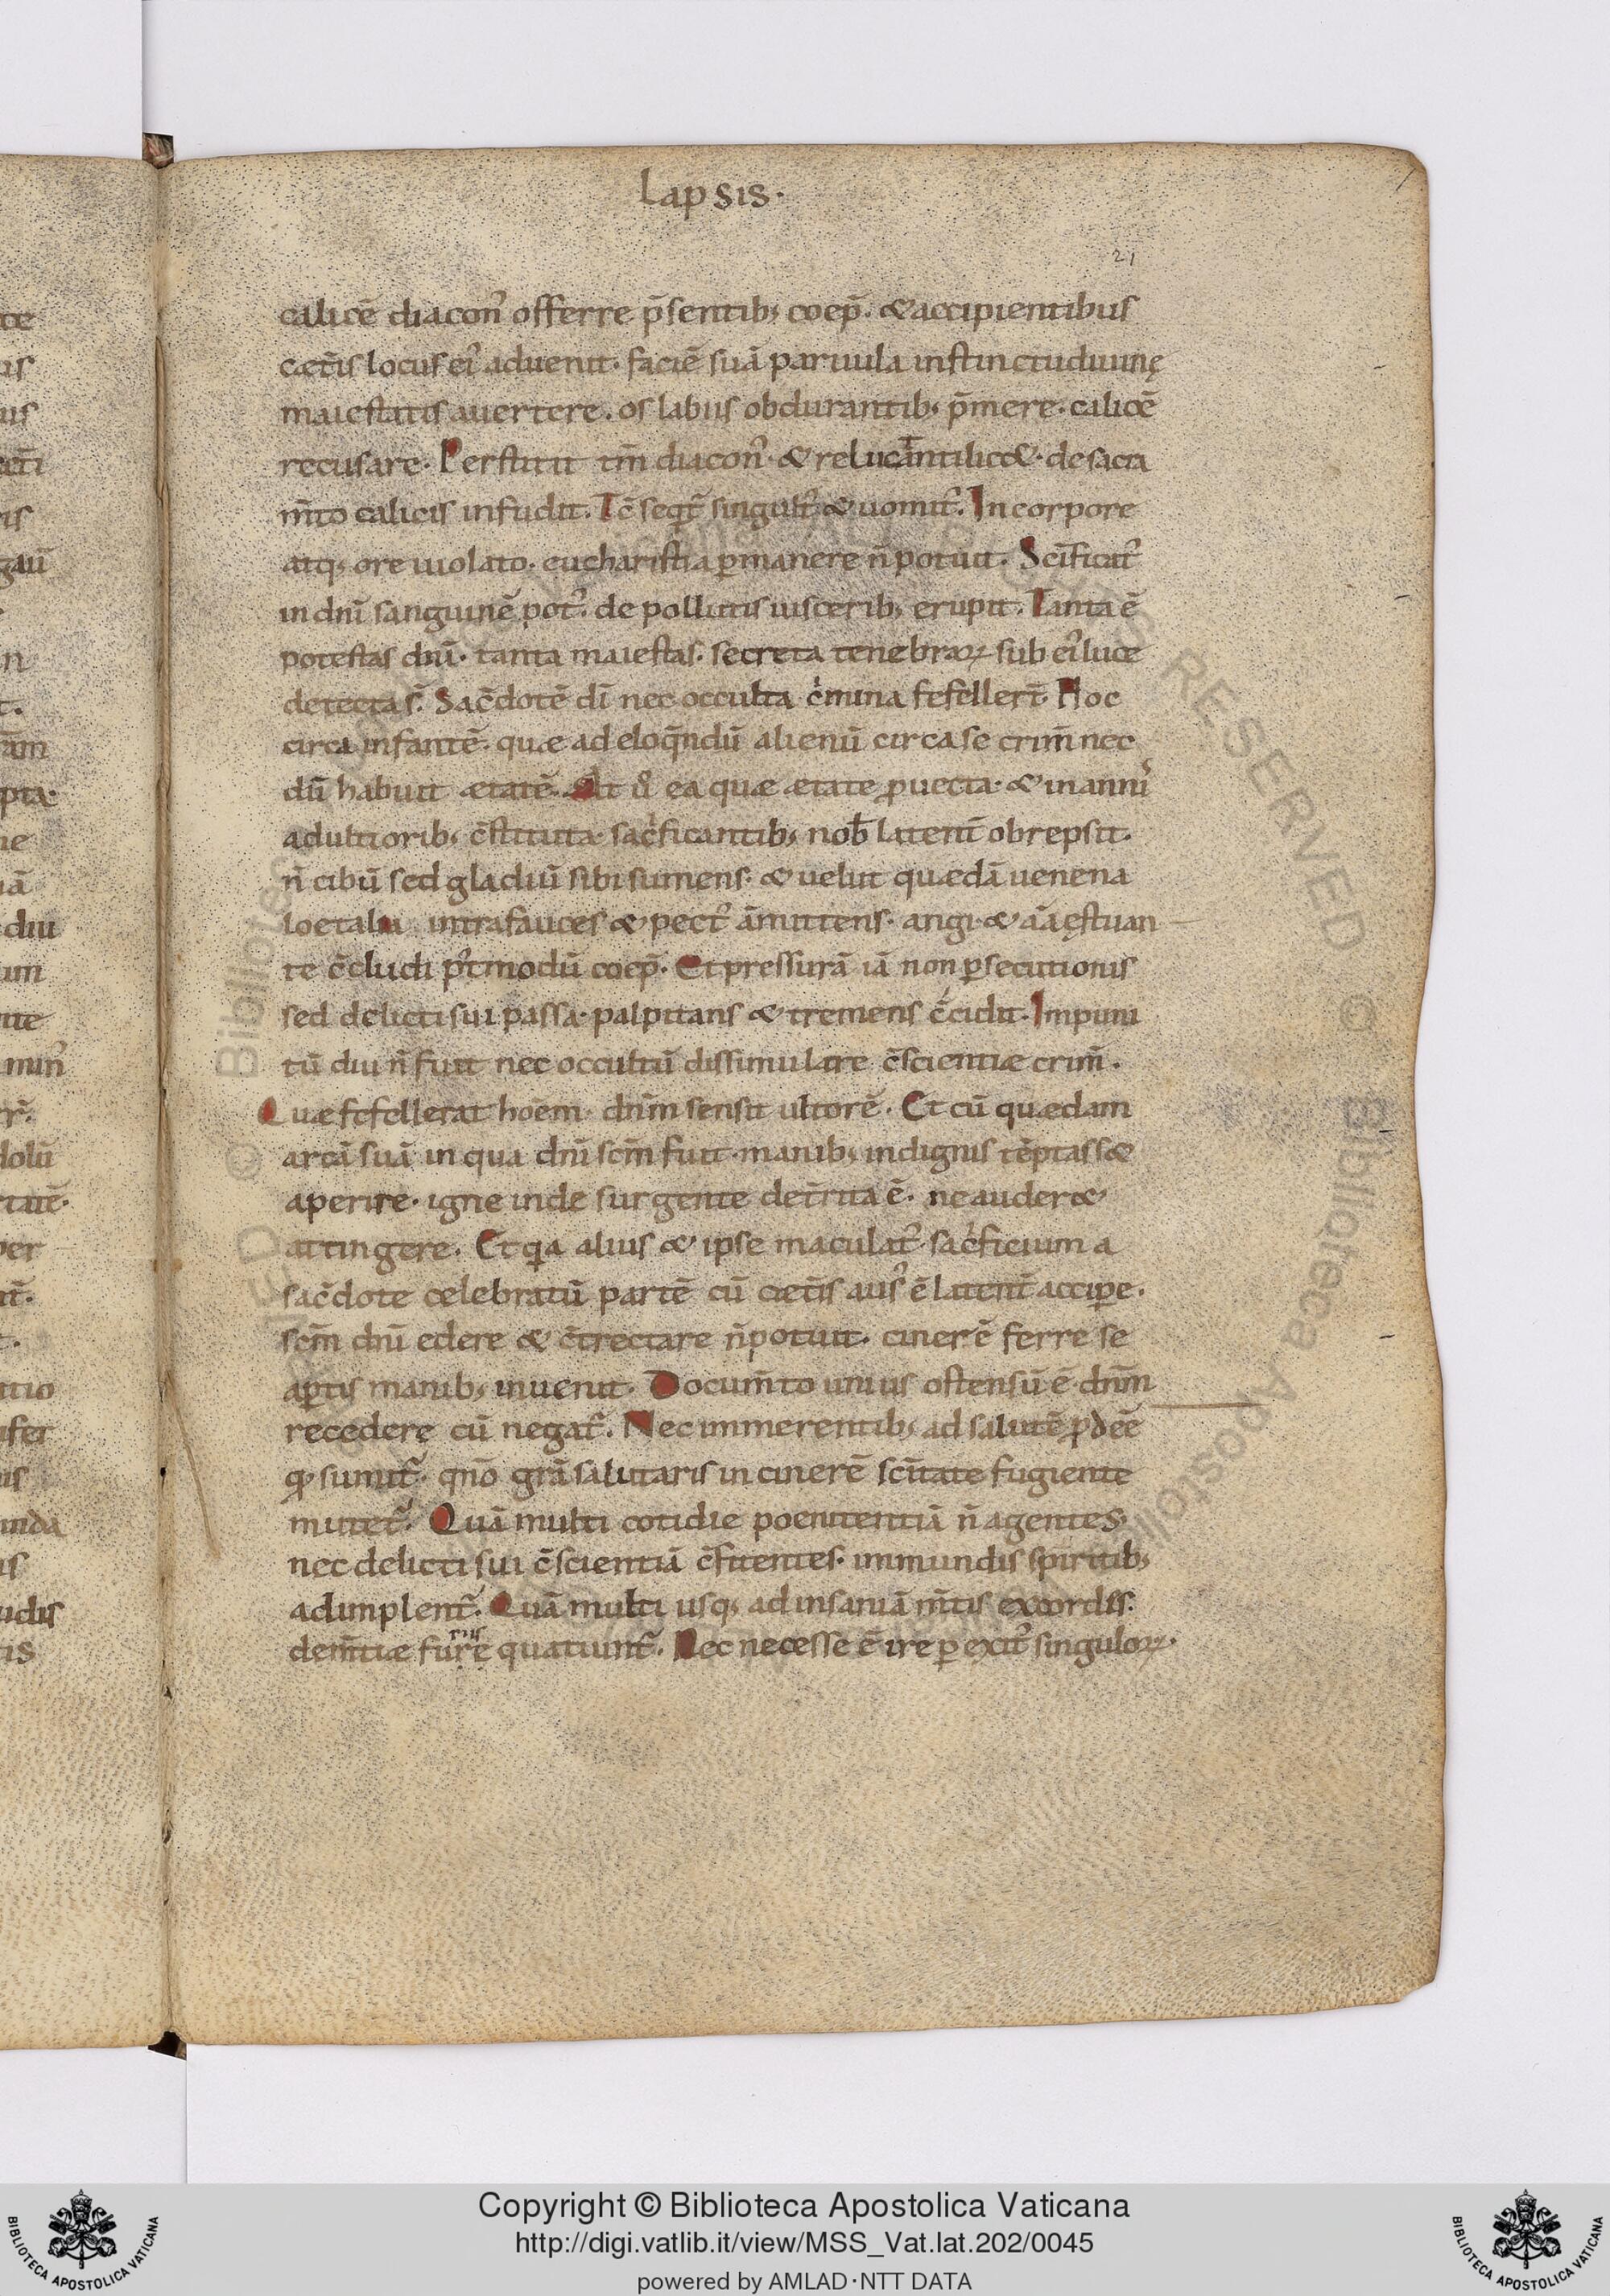 Lapsis·
21
calicē diacon᾽ offerre p̄sentib; coep̄. &accipientibus
cæt̄is locus ei᾽ aduenit· faciē suā paruula instinctu diuinę
maiestatis auertere. os labiis obdurantib; p̄mere· calicē
recusare· Perstitit tm̄ diacon᾽· & reluctantilic&· de sacra
m̄to calicis infudit. Tc̄ seqr̄ singult᾽ & uomit᾽. In corpore
atq; ore uiolato· eucharistia p̱manere n̄ potuit. Sc̄ificat᾽
in dn̄i sanguinē pot᾽. de pollutis uiscerib; erupit. Tanta ē
potestas dn̄i· tanta maiestas. secreta tenebraꝝ sub ei᾽ luce
detecta s̄. Sac̄dotē dī nec occulta cͥmina fefeller̄t. Hoc
circa infantē· quæ ad eloq̄ndū alienū circa se crim̄ nec
dū habuit ætatē. At uͦ ea quæ ætate ꝓuecta· & in anni᾽
adultiorib; c̄stituta· sacͥficantib; nob̄ latent̄ obrepsit.
n̄ cibū sed gladiū sibi sumens· & uelut quædā uenena
loetalia intra fauces & pect᾽ āmittens· angi· & aīa ęstuan
te c̄cludi p᾽tmodū coep̄. Et pressurā iā non p̱secutionis
sed delicti sui passa· palpitans & tremens c̄cidit. Impuni
tū diu n̄ fuit nec occultū dissimulare c̄scientiæ crim̄.
Quæ fefellerat hoēm· dn̄m sensit ultorē. Et cū quædam
arcā suā in qua dn̄i sc̄m fuit· manib; indignis tēptass&
aperire· igne inde surgente det̄rita ē. ne auder&
attingere. Et qͥa alius & ipse maculat᾽· sacͥficium a
sac̄dote celebratū partē cū cæt̄is aus᾽ ē latent̄ accip̱e.
sc̄m dn̄i edere & c̄trectare n̄ potuit. cinerē ferre se
ap̱tis manib; inuenit. Docum̄to unius ostensū ē dn̄m
recedere cū negat᷑. Nec immerentib; ad salutē ꝓdeē
qͩ sumit᷑. qn̄o gr̄a salutaris in cinerē sc̄itate fugiente
mutet᷑. Quā multi cotidie poenitentiā n̄ agentes·
nec delicti sui c̄scientiā c̄fitentes· immundis spiritib;
adimplent᷑. Quā multi usq; ad insaniā m̄tis excordis·
dem̄tiæ furorē quatiunt᷑. Nec necesse ē ire p̱ exit᾽ singuloꝝ·
Copyright © Biblioteca Apostolica Vaticana
http://digi.vatlib.it/view/MSS_Vat.lat.202/0045
powered by AMLAD·NTT DATA
BIBLIOTECA APOSTOLICA VATICANA
BIBLIOTECA APOSTOLICA VATICANA